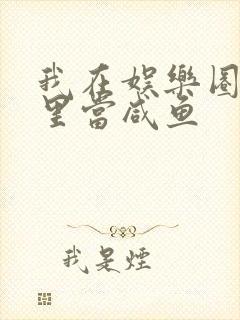 我在娱樂圈
里當咸鱼
我是煙